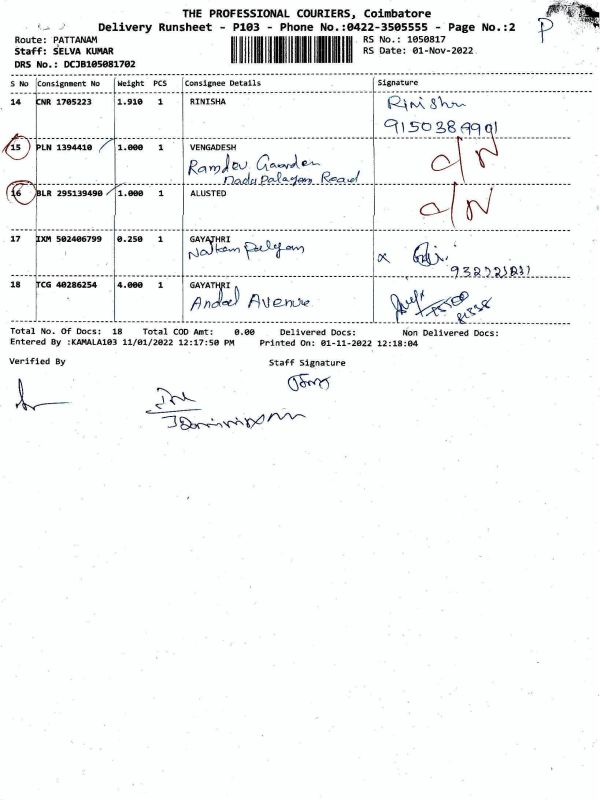 THE PROFESSIONAL COURIERS, Coimbatore
Delivery Runsheet - P103 - Phone No.:0422-3505555 - Page No.:2
P
Route: PATTANAM
RS No.: 1050817
Staff: SELVA KUMAR
RS Date: 01-Nov-2022
DRS No.: DCJB105081702
S No Consignment No Weight PCS Consignee Details Signature
14 CNR 1705223 1.910 1 RINISHA Rinisha
9150384901
15 PLN 1394410 1.000 1 VENGADESH C/N
Ramdev Gaarden
Nada Palayam Road
16 BLR 295139490 1.000 1 ALUSTED C/N
17 IXM 502406799 0.250 1 GAYATHRI x
18 TCG 40286254 4.000 1 GAYATHRI
Andal Avenue
Total No. Of Docs: 18 Total COD Amt: 0.00 Delivered Docs: Non Delivered Docs:
Entered By :KAMALA103 11/01/2022 12:17:50 PM Printed On: 01-11-2022 12:18:04
Verified By Staff Signature